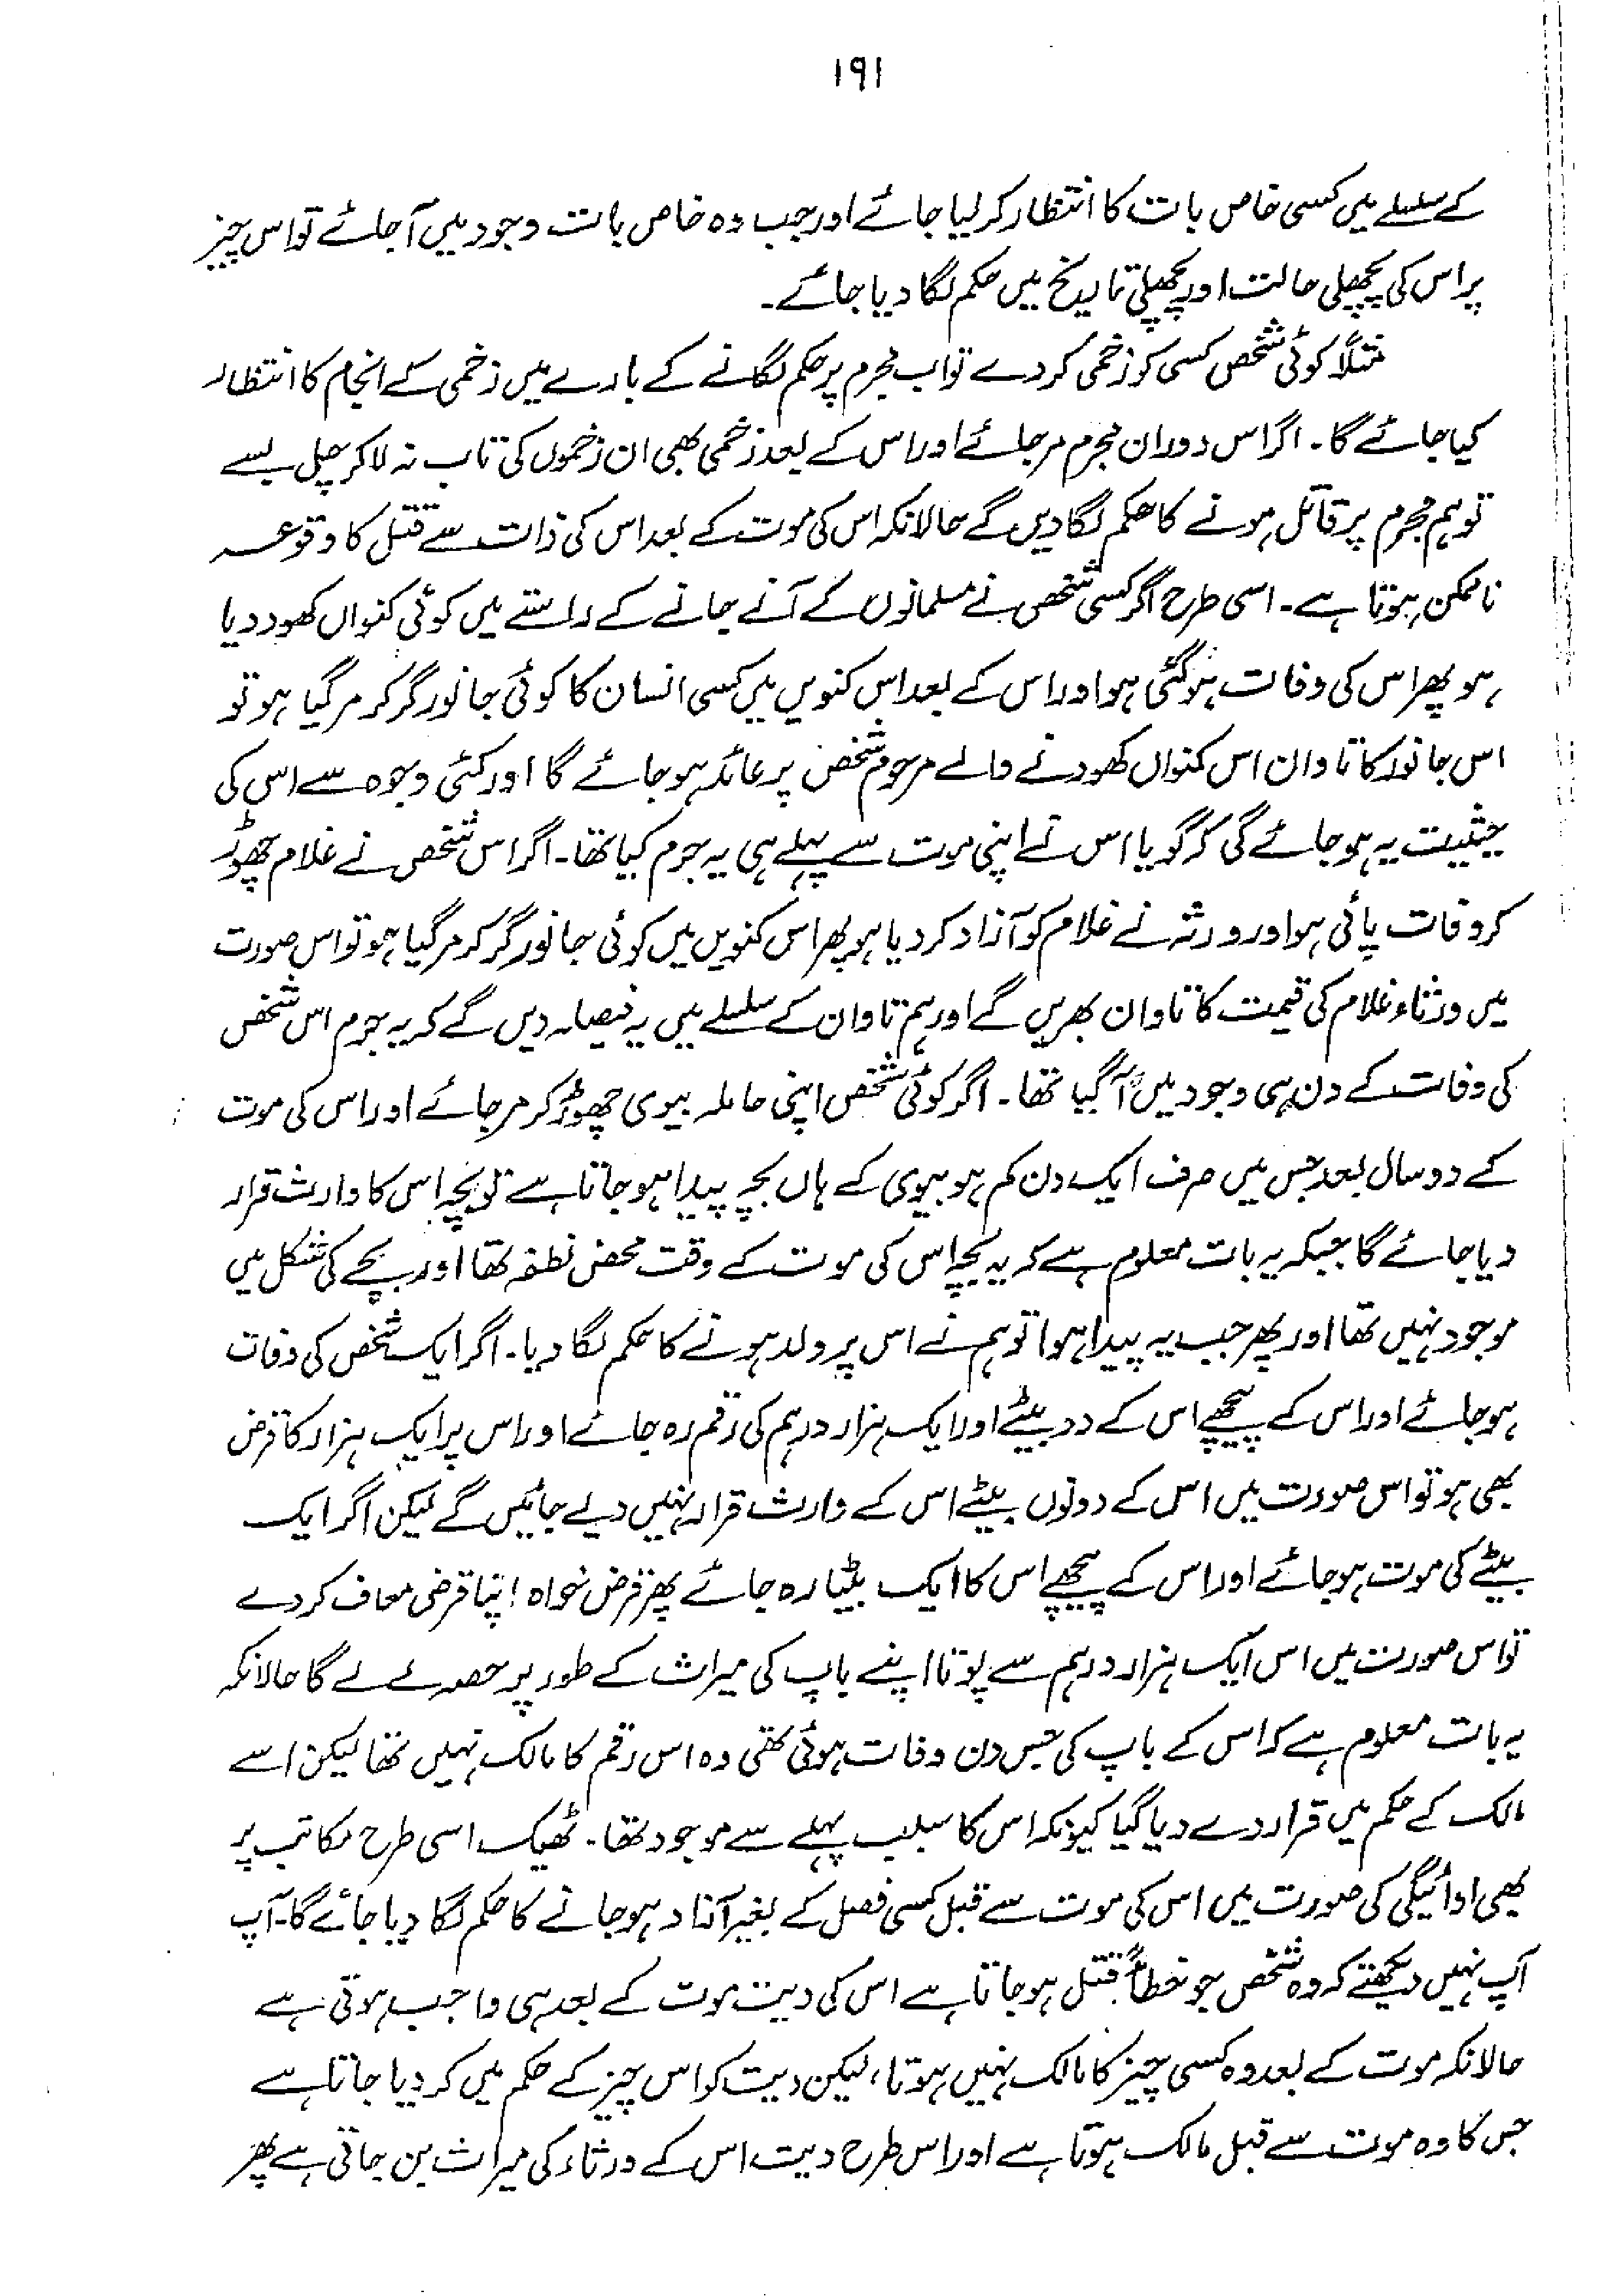 ۱۹۱
کے سلسلے میں کسی خاص بات کا انتظار کر لیا جائے اور جب وہ خاص بات وجود میں آجائے تو اس چیز
پر اس کی پچھلی حالت اور پچھلی تاریخ میں حکم لگا دیا جائے۔
مثلاً کوئی شخص کسی کو زخمی کردے تو اب مجرم پر حکم لگانے کے بارے میں زخمی کے انجام کا انتظار
کیا جائے گا۔ اگر اس دوران مجرم مرجائے اور اس کے بعد زخمی بھی ان زخموں کی تاب نہ لاکر چل بسے
تو ہم مجرم پر قاتل ہونے کا حکم لگا دیں گے حالانکہ اس کی موت کے بعد اس کی ذات سے قتل کا وقوعہ
ناممکن ہوتا ہے۔ اسی طرح اگر کسی شخص نے مسلمانوں کے آنے جانے کے راستے میں کوئی کنواں کھود دیا
ہو پھر اس کی وفات ہوگئی ہو اور اس کے بعد اس کنویں میں کسی انسان کا کوئی جانور گر کر مر گیا ہو تو
اس جانور کا تاوان اس کنواں کھودنے والے مرحوم شخص پر عائد ہو جائے گا اور کئی وجوہ سے اس کی
حیثیت یہ ہو جائے گی کہ گویا اس نے اپنی موت سے پہلے ہی یہ جرم کیا تھا۔ اگر اس شخص نے غلام چھوڑ
کر وفات پائی ہو اور ورثہ نے غلام کو آزاد کر دیا ہو پھر اس کنویں میں کوئی جانور گر کر مر گیا ہو تو اس صورت
میں ورثاء غلام کی قیمت کا تاوان بھریں گے اور ہم تاوان کے سلسلے میں یہ فیصلہ دیں گے کہ یہ جرم اس شخص
کی وفات کے دن ہی وجود میں آگیا تھا۔ اگر کوئی شخص اپنی حاملہ بیوی چھوڑ کر مر جائے اور اس کی موت
کے دو سال بعد جس میں صرف ایک دن کم ہو بیوی کے ہاں بچہ پیدا ہو جاتا ہے تو بچہ اس کا وارث قرار
دیا جائے گا جبکہ یہ بات معلوم ہے کہ یہ بچہ اس کی موت کے وقت محض نطفہ تھا اور بچے کی شکل میں
موجود نہیں تھا اور پھر جب یہ پیدا ہوا تو ہم نے اس پر ولد ہونے کا حکم لگا دیا۔ اگر ایک شخص کی وفات
ہو جائے اور اس کے پیچھے اس کے دو بیٹے اور ایک ہزار درہم کی رقم رہ جائے اور اس پر ایک ہزار کا قرض
بھی ہو تو اس صورت میں اس کے دونوں بیٹے اس کے وارث قرار نہیں دیے جائیں گے لیکن اگر ایک
بیٹے کی موت ہو جائے اور اس کے پیچھے اس کا ایک بیٹا رہ جائے پھر قرض خواہ اپنا قرض معاف کر دے
تو اس صورت میں اس ایک ہزار درہم سے پوتا اپنے باپ کی میراث کے طور پر حصہ لے گا حالانکہ
یہ بات معلوم ہے کہ اس کے باپ کی جس دن وفات ہوئی تھی وہ اس رقم کا مالک نہیں تھا لیکن اسے
مالک کے حکم میں قرار دے دیا گیا کیونکہ اس کا سبب پہلے سے موجود تھا۔ ٹھیک اسی طرح مکاتب پر
بھی ادائیگی کی صورت میں اس کی موت سے قبل کسی فصل کے بغیر آزاد ہو جانے کا حکم لگا دیا جائے گا۔ آپ
آپ نہیں دیکھتے کہ وہ شخص جو خطاً قتل ہو جاتا ہے اس کی دیت موت کے بعد ہی واجب ہوتی ہے
حالانکہ موت کے بعد وہ کسی چیز کا مالک نہیں ہوتا، لیکن دیت کو اس چیز کے حکم میں کر دیا جاتا ہے
جس کا وہ موت سے قبل مالک ہوتا ہے اور اس طرح دیت اس کے ورثاء کی میراث بن جاتی ہے پھر